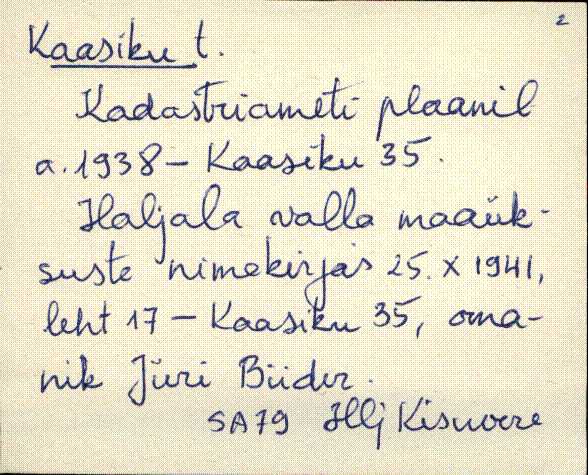 2
Kaasiku t.
Kadastriameti plaanil
a. 1938 – Kaasiku 35.
Haljala valla maaük-
suste nimekirjas 25. X 1941,
leht 17 – Kaasiku 35, oma-
nik Jüri Büder.
SA79 Hlj Kisuvere